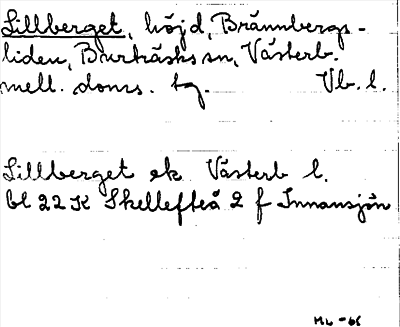 Lillberget, höjd, Brännbergs-
liden, Burträsks sn, Västerb.
mell. doms. tg. Vb. l.
Lillberget ek Västerb l.
bl 22 K Skellefteå 2 f Innansjön